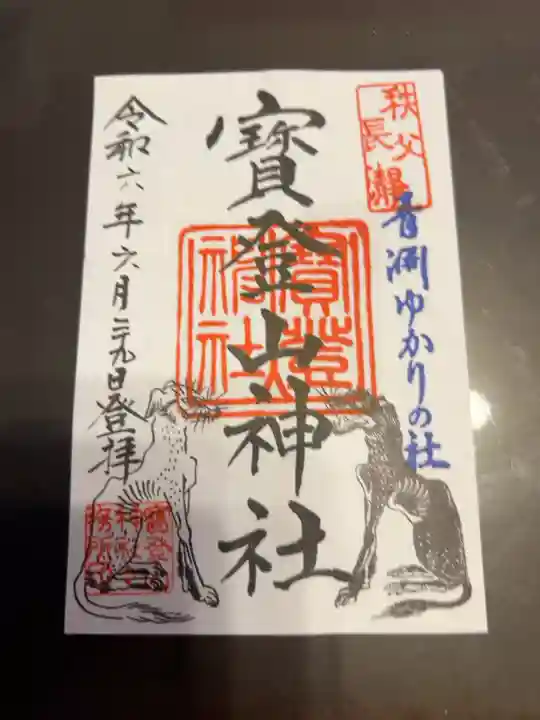 秩父
長瀞
青淵ゆかりの社
寳登山神社
寳登
山神
社
令和六年六月二十九日登拝